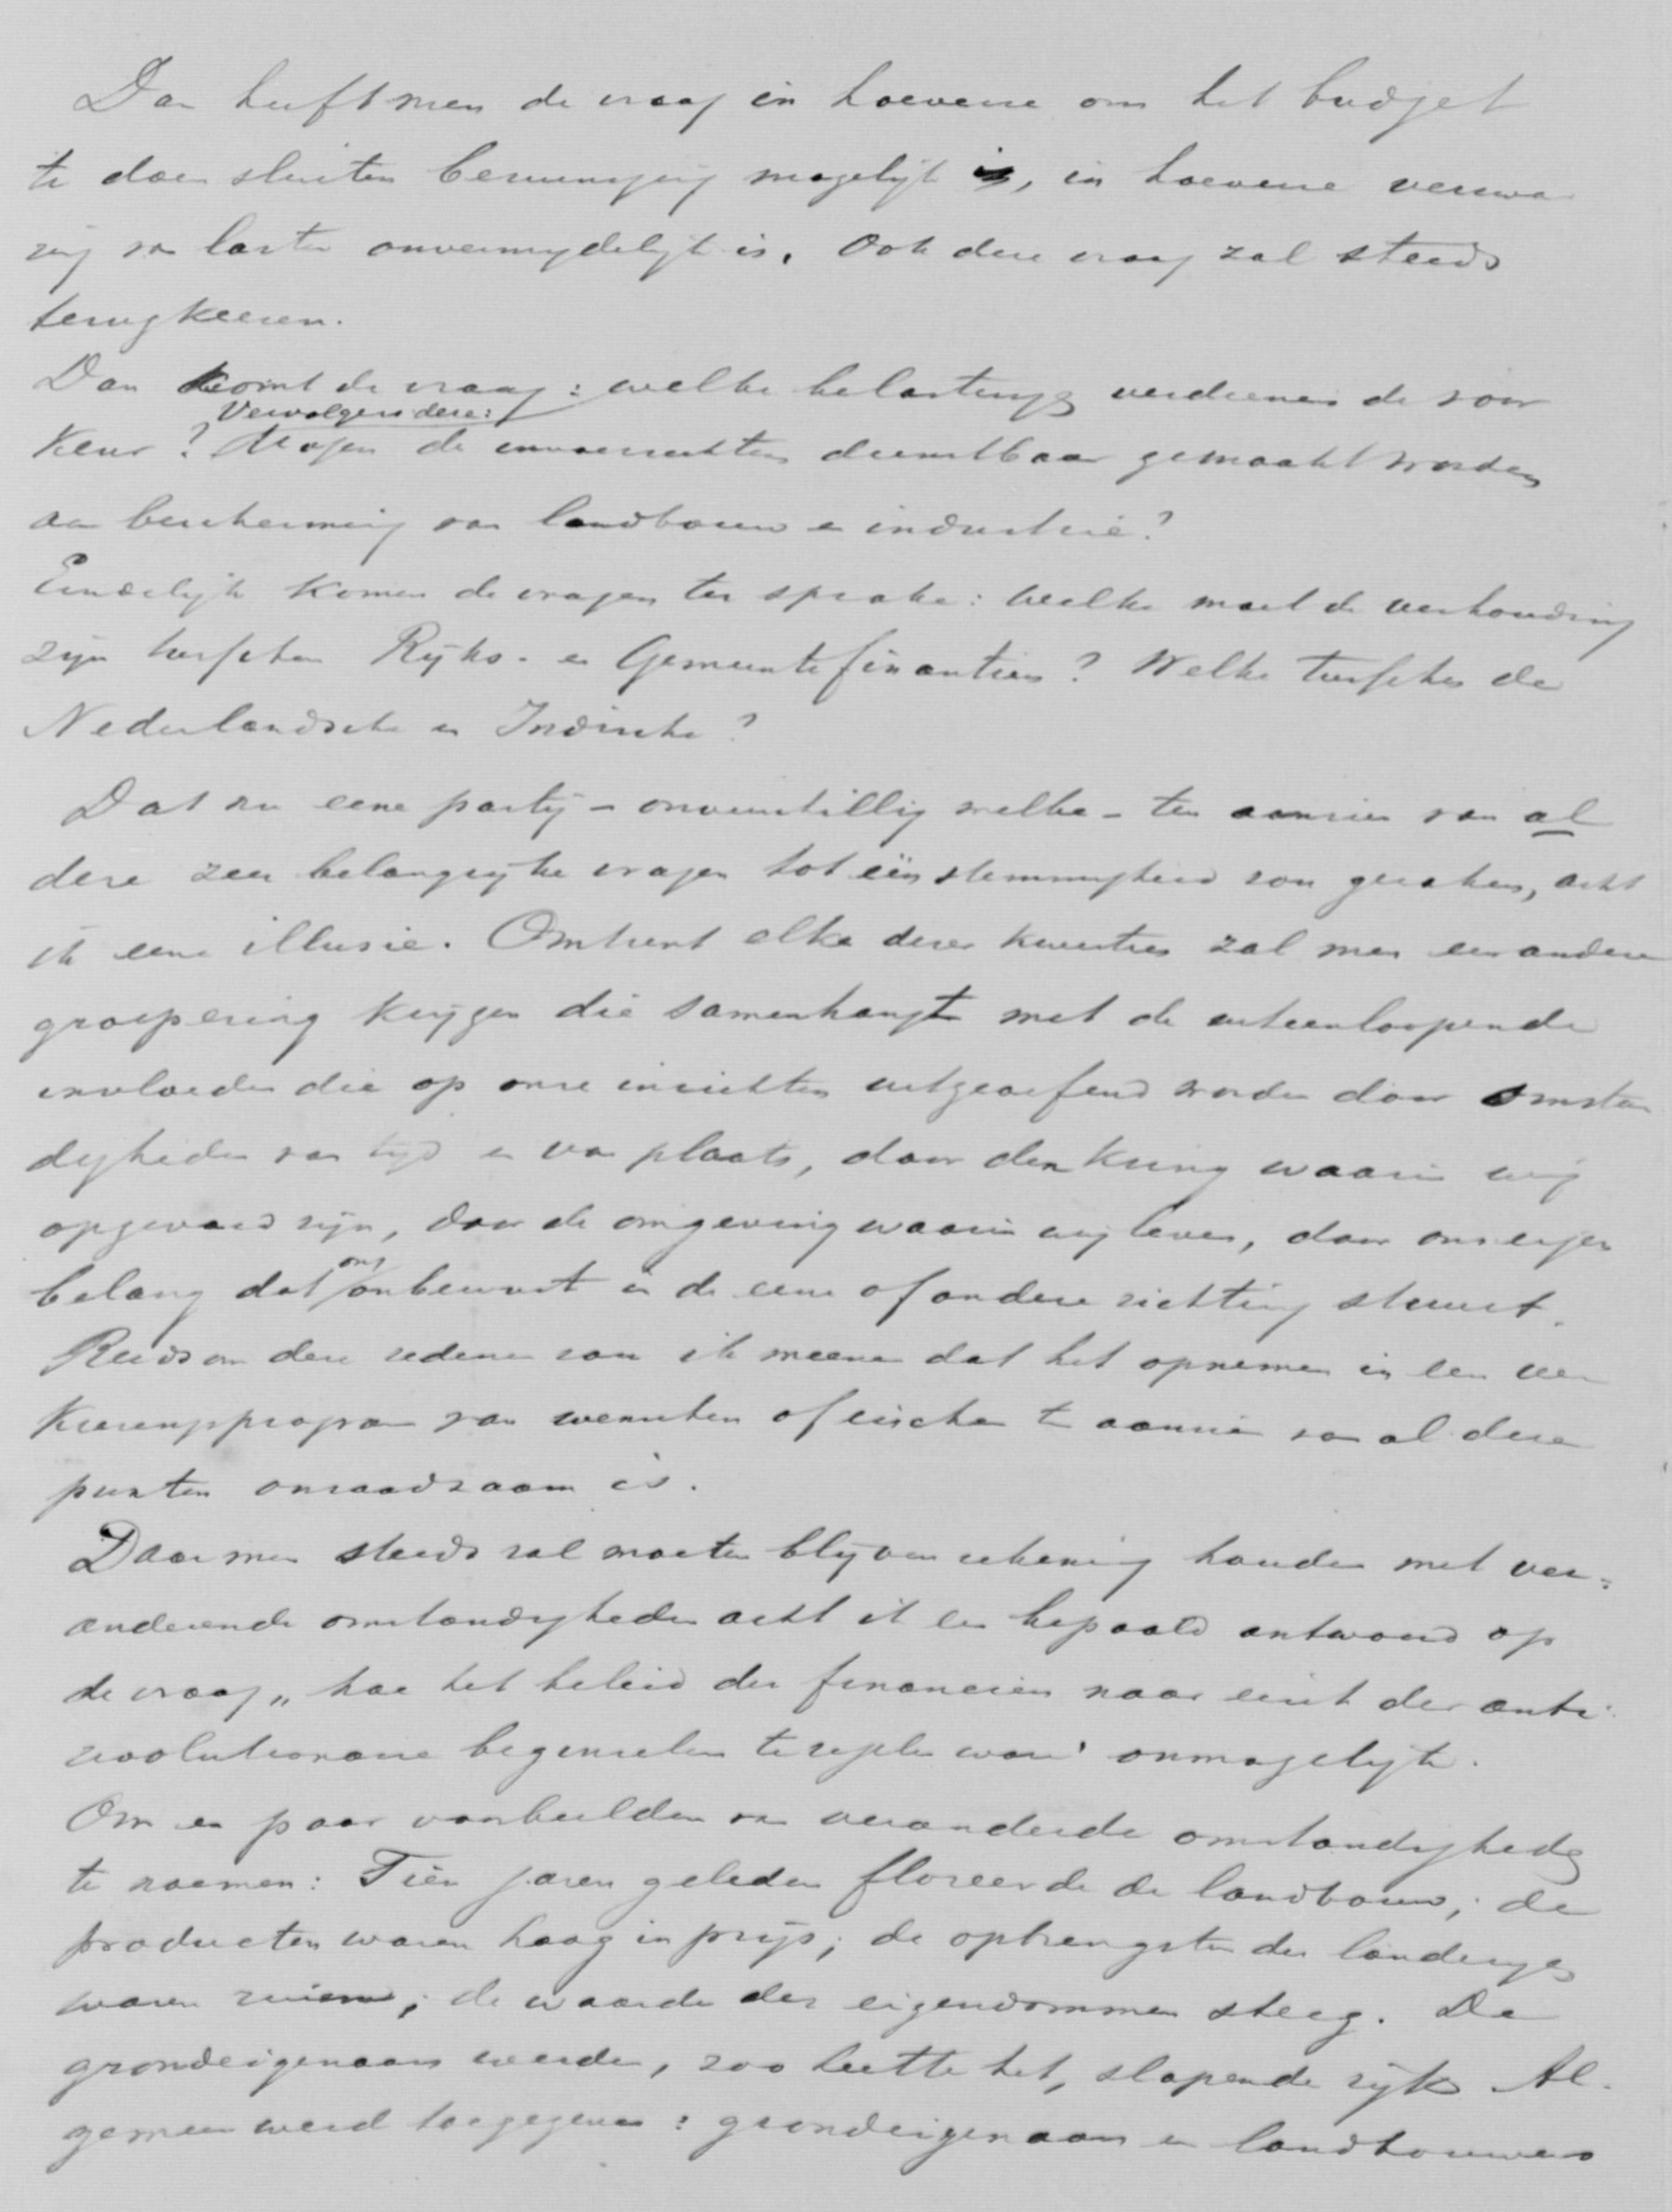 Dan heeft men de vraag in hoeverre om het budget
te doen sluiten bezuiniging mogelijk is, in hoeverre verzwa
ring van lasten onvermijdelijk is. Ook deze vraag zal steeds
terugkeeren.
Dan komt de vraag: welke belastingen verdienen de voor
Vervolgens deze:
keur? Mogen de invoerrechten dienstbaar gemaakt worden
aan bescherming van landbouw en industrie?
Eindelijk komen de vragen ter sprake: welke moet de verhouding
zijn tusschen Rijks- en Gemeentefinantien? Welke tusschen de
Nederlandsche en Indische?
Dat nu eene partij - onverschillig welke - ten aanzien van al
deze zeer belangrijke vragen tot éénstemmigheid zou geraken, acht
ik eene illusie. Omtrent elke dezer kwesties zal men een andere
groepeering krijgen die samenhangt met de uiteenloopende
invloeden die op onze inzichten uitgeoefend worden door omstan
digheden van tijd en van plaats, door den kring waarin wij
opgevoed zijn, door de omgeving waarin wij leven, door ons eigen
belang dat ons onbewust in de eene of andere richting stuurt.
Reeds om deze redenen zou ik meenen dat het opnemen in een ver
kiezingsprogram van wenschen of eischen ten aanzien van al deze
punten onraadzaam is.
Daar men steeds zal moeten blijven rekening houden met ver=
anderende omstandigheden acht ik een bepaald antwoord op
de vraag „hoe het beleid der financien naar eisch der anti-
revolutionaire beginselen te regelen ware" onmogelijk.
Om een paar voorbeelden van veranderde omstandigheden
te noemen: Tien jaren geleden floreerde de landbouw; de
producten waren hoog in prijs; de opbrengsten der landerijen
waren ruim; de waarde der eigendommen steeg. De
grondeigenaars werden, zoo heette het, slapende rijk. Al-
gemeen werd toegegeven: grondeigenaars en landbouwers